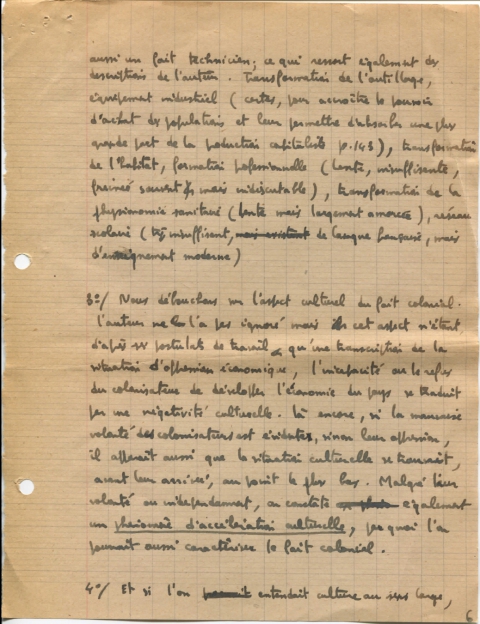 aussi un fait technicien ; ce qui ressort également des
descriptions de l'auteur. Transformation de l'outillage,
équipement industriel (certes, pour accroître le pouvoir
d'achat des populations et leur permettre d'absorber une plus
grande part de la production capitaliste p.143), transformation
de l'habitat, formation professionnelle (lente, insuffisante,
freinée souvent mais indiscutable), transformation de la
physionomie sanitaire (lente mais largement amorcée), réseau
scolaire (insuffisent, mais existent de langue française, mais
d'enseignement moderne)
3°/ Nous débouchons sur l'aspect culturel du fait colonial.
l'auteur ne l'a pas ignoré mais cet aspect n'étant
d'après ses postulats de travail, qu'une transcription de la
situation d'oppression économique, l'incapacité ou le refus
du colonisateur de développer l'économie du pays se traduit
par une négativité culturelle. Là encore, si la mauvaise
volonté des colonisateurs est évidente, sinon leur oppression,
il apparait aussi que la situation culturelle se trouvait,
avant leur arrivée, au point le plus bas. Malgré leur
volonté ou indépendamment, on constate également
un phénomène d'accélération culturelle, par quoi l'on
pourrait aussi caractériser le fait colonial.
4°/ Et si l'on entendait culture au sens large,
6